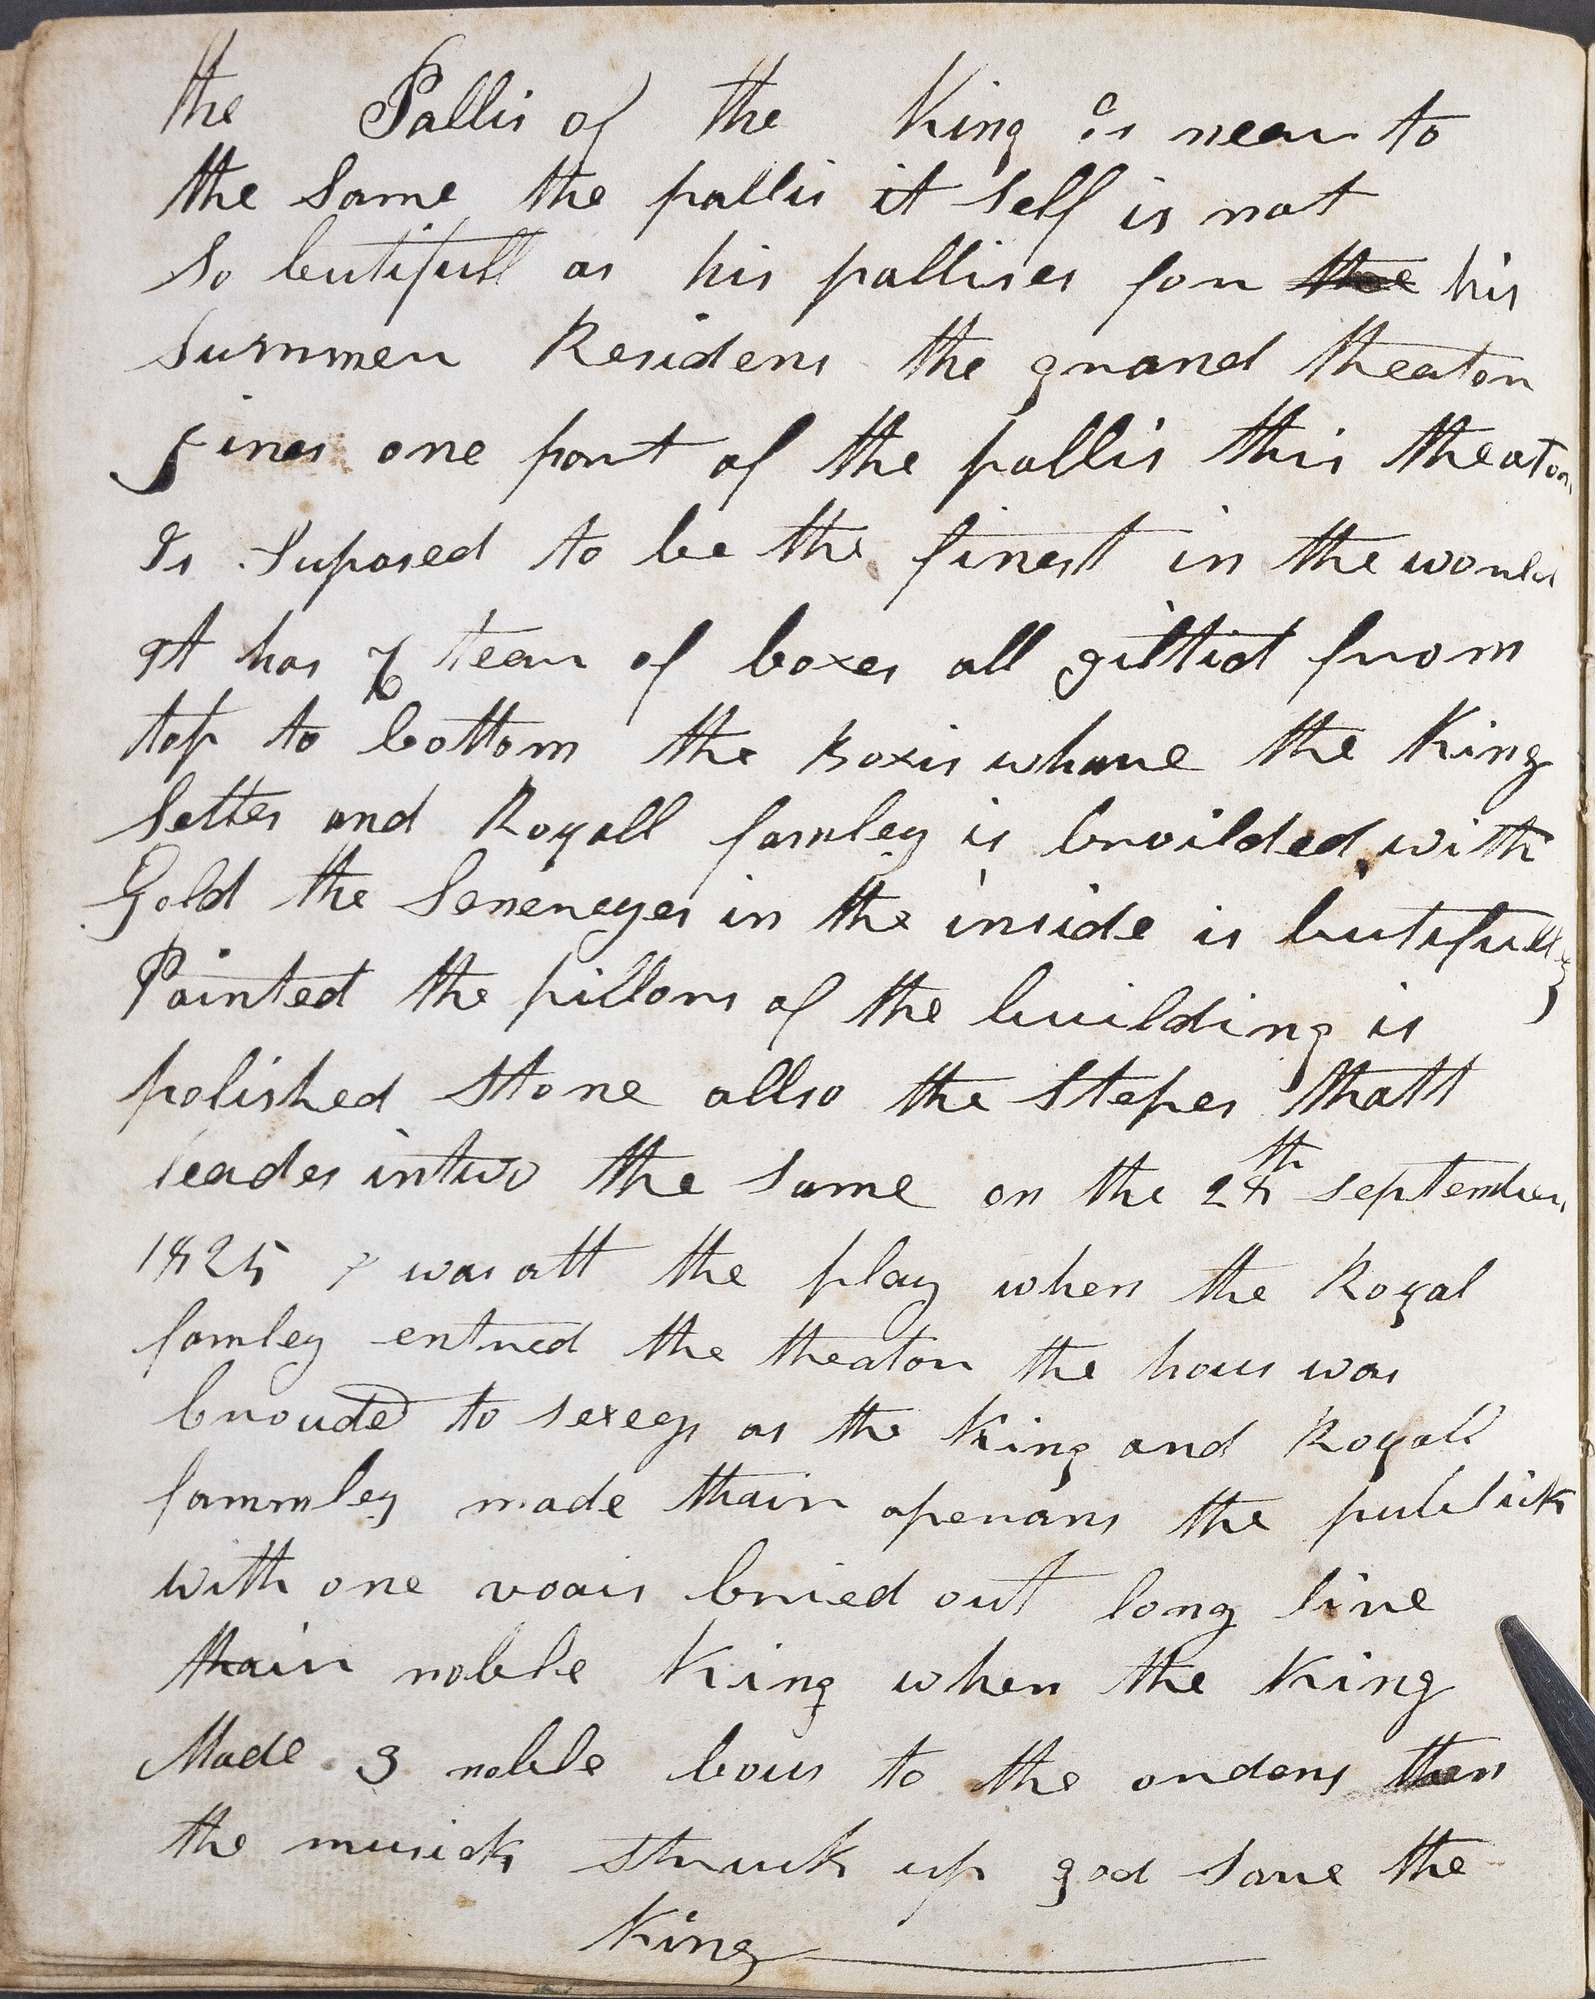 the Pallis of the King is near to
the Same the pallis it Self is not
So butifull as his pallises for the his
Summer Residens the grand theator
Jines one part of the pallis this theator
Is Suposed to be the finest in the world
It has 7 tear of boxes all giltid from
top to bottom the Boxis whare the King
Settes and Royall famley is broilded with
Gold the Senereyes in the inside is butifulley
Painted the pillors of the building is
polished Stone allso the Stepes thatt
leades intwo the Same on the 28th September
1825 I was att the play when the Royal
famley entred the theator the hous was
crouded to sexes as the King and Royall
fammley made thair aperans the publick
with one voais cried out long live
thair noble King when the King
Made 3 noble bous to the ordens then
the musick Struck up god Save the
King